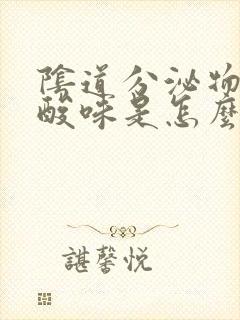 陰道分泌物
酸味是怎麼
諶馨悅